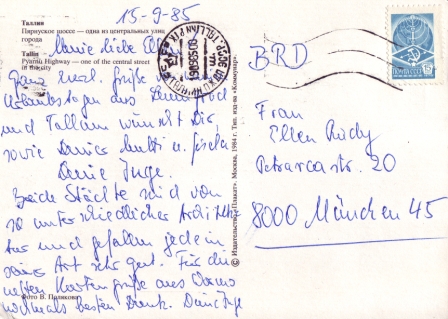 15-9-85
Таллин
Пярнуское шоссе — одна из центральных улиц
города
Meine liebe
Tallin
Pyarnu Highway — one of the central street
in the city
Ganz herzl. Grüße
Urlaubstagen aus Leningrad
und Tallinn wünscht Dir,
sowie Deiner Mutti u. Gisela
Deine Inge.
Beide Städte sind von
so unterschiedlicher Architek-
tur und gefallen jede in
seiner Art sehr gut. Für die
netten Kartengrüße aus
nochmals besten Dank. Deine Inge
Фото В. Полякова
© Издательство «Плакат». Москва, 1984 г. Тип. изд-ва «Коммунар».
BRD
ПОЧТА СССР
Frau
Ellen Rüdy
Petrarcastr. 20
8000 München 45